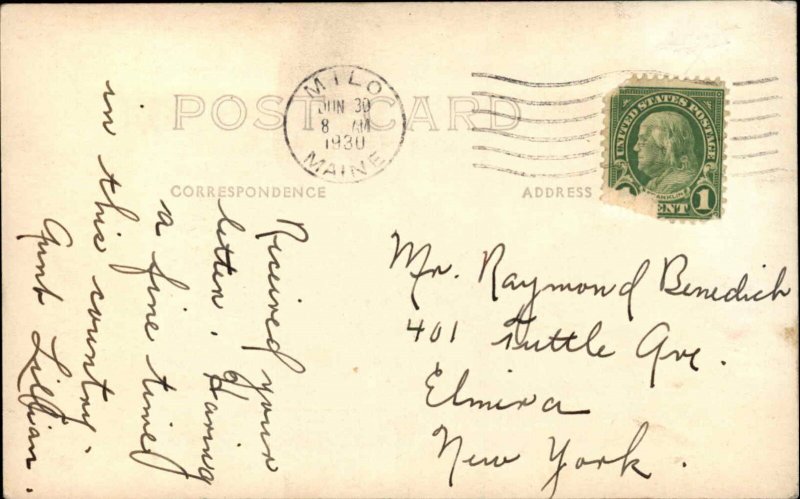 POST CARD
MILO
JUN 30
8 AM
1930
MAINE
UNITED STATES POSTAGE
FRANKLIN
ENT 1
CORRESPONDENCE
ADDRESS
Received your
letter. Having
a fine time
in this country.
Aunt Lillian.
Mr. Raymond Benedict
401 Tuttle Ave.
Elmira
New York.